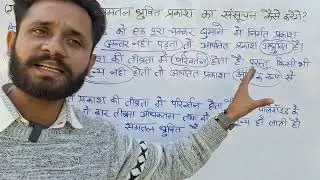 समतल ध्रुवित प्रकाश का संसूचन कैसे करेंगे?
को एक पूरा चक्कर घुमाने में निर्गत प्रकाश
अन्तर नहीं पड़ता तो आपतित प्रकाश अध्रुवित है।
प्रकाश की तीव्रता में परिवर्तन होता है परन्तु किसी भी
शून्य नहीं होती तो आपतित प्रकाश रूप से
प्रकाश की तीव्रता में परिवर्तन होता
बार तीव्रता अधिकतम तथा शून्य हो जाती है।
समतल ध्रुवित